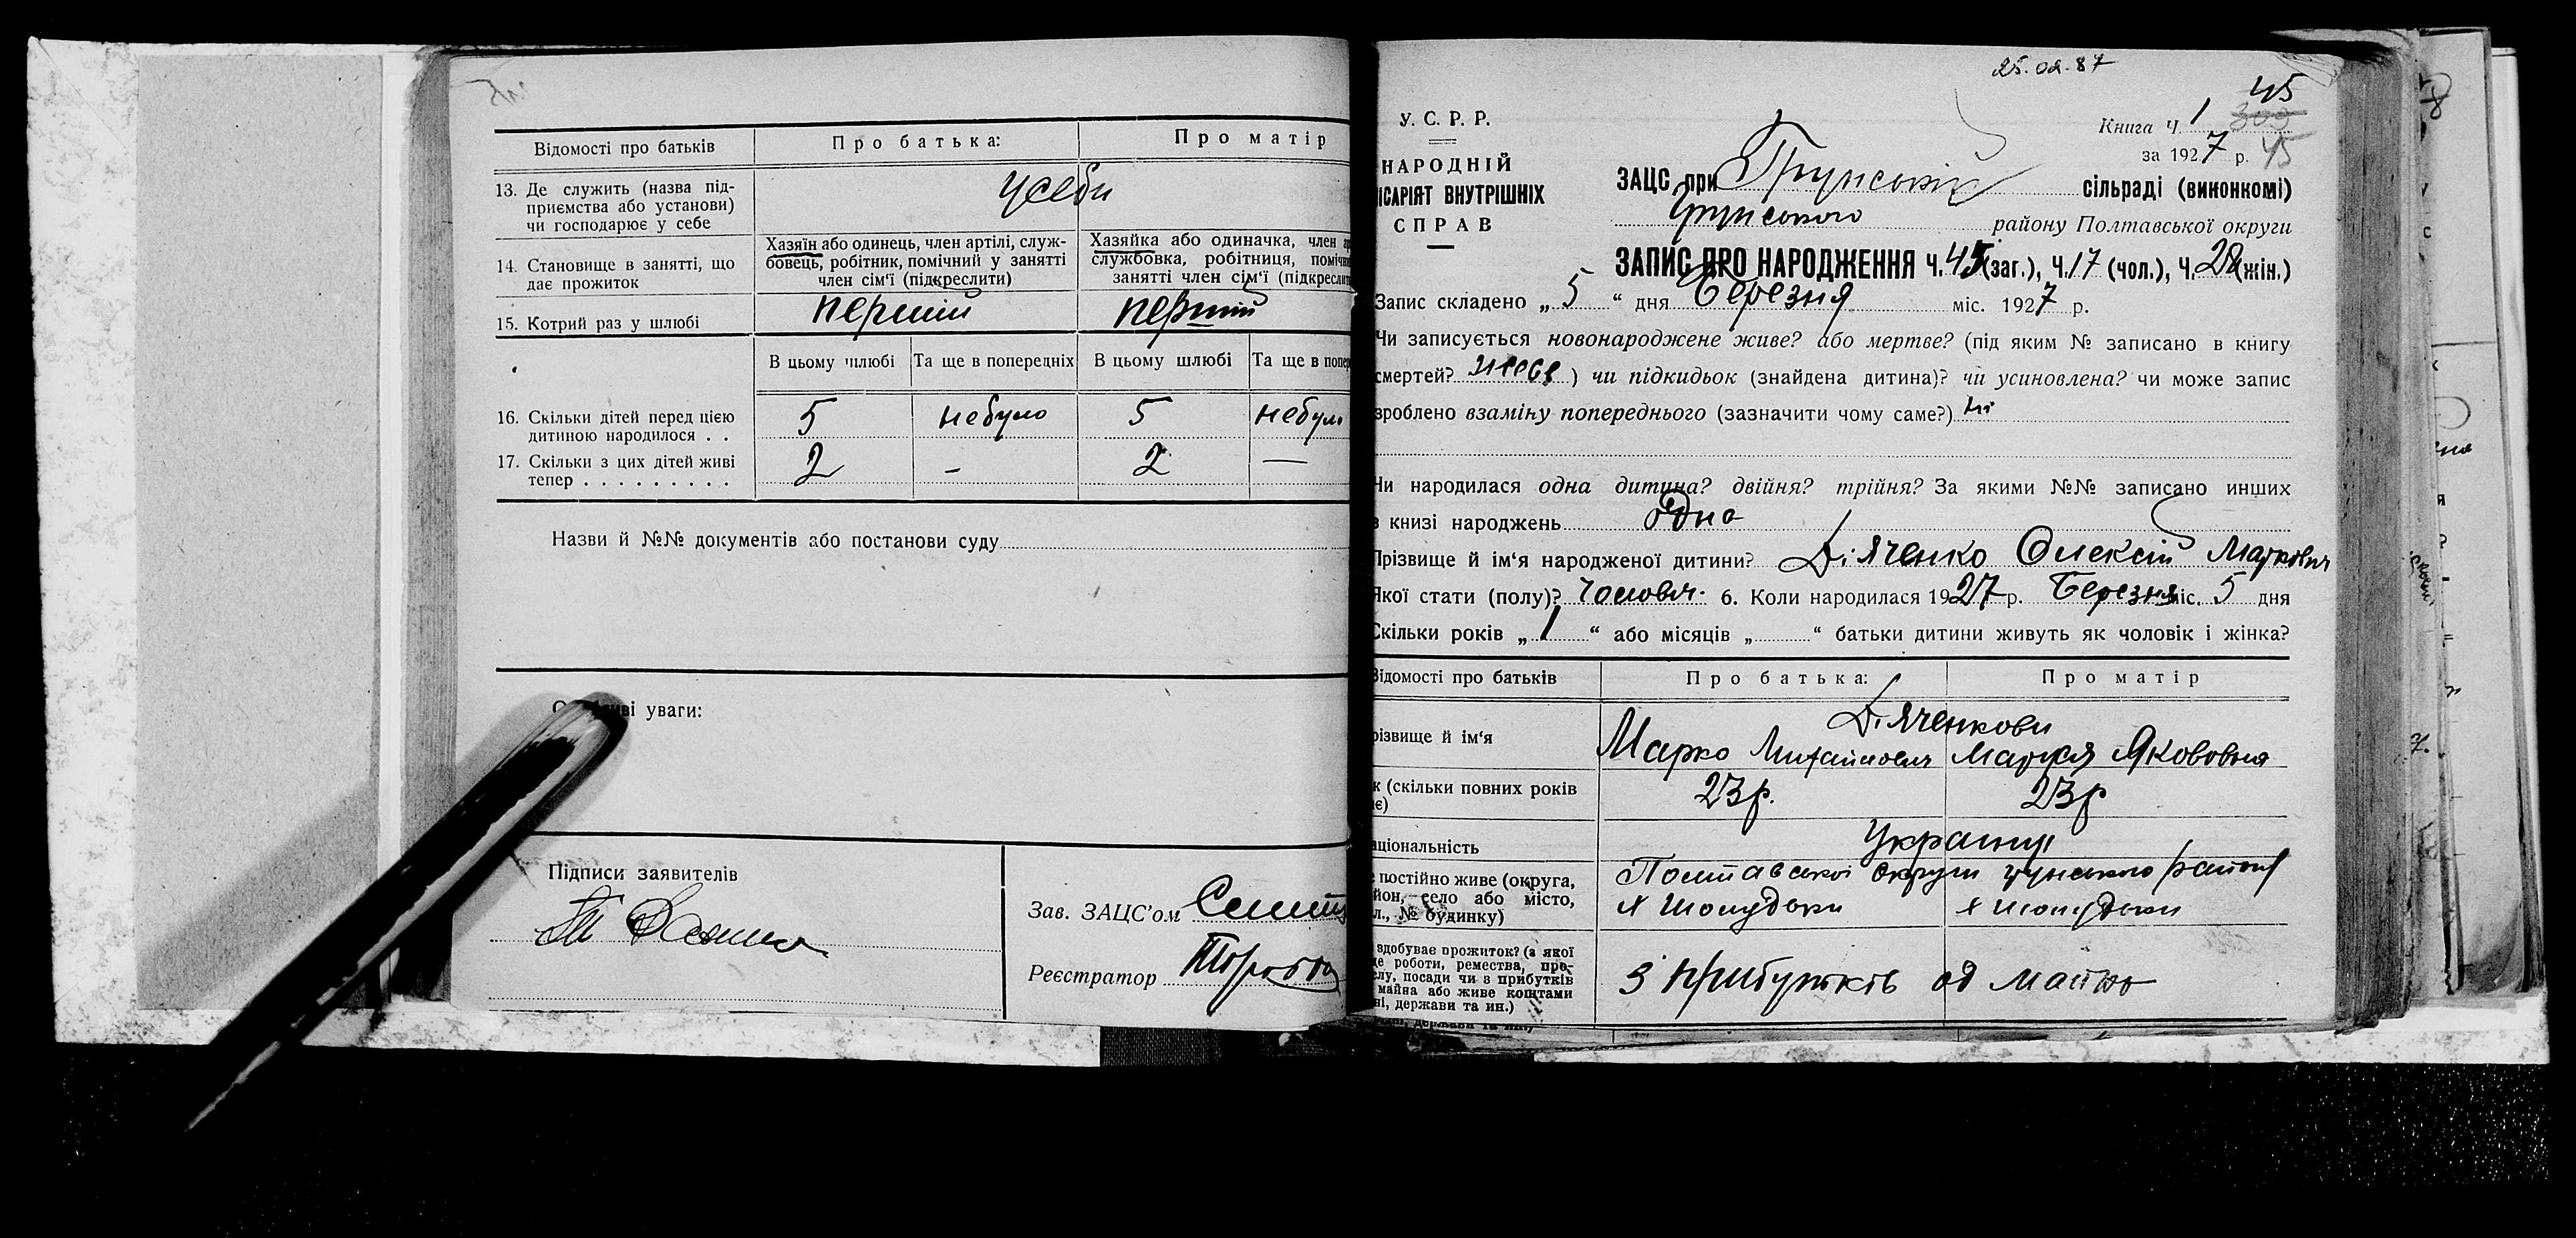 Відомості про батьків
Про батька:
Про матір
13. Де служить (назва під-
приємства або установи)
чи господарює у себе
усеби
14. Становище в занятті, що
дає прожиток
Хазяїн або одинець, член артілі, служ-
бовець, робітник, помічний у занятті
член сім'ї (підкреслити)
Хазяйка або одиначка, член
службовка, робітниця, поміч
занятті член сім'ї (підкресли
15. Котрий раз у шлюбі
перший
перший
В цьому шлюбі
Та ще в попередніх
В цьому шлюбі
Та ще в попе
16. Скільки дітей перед цією
дитиною народилося . .
5
небуло
5
небуло
17. Скільки з цих дітей живі
тепер . . . . . . . . .
2
–
2
—
Назви й №№ документів або постанови суду
уваги:
Підписи заявителів
Зав. ЗАЦС'ом
Реєстратор
25.02.87
45
У. С. Р. Р.
НАРОДНІЙ
ІСАРІЯТ ВНУТРІШНІХ
СПРАВ
Книга Ч. 1 303
за 1927 р. 45
ЗАЦС при Грунській сільраді (виконкомі)
Грунського району Полтавської округи
ЗАПИС ПРО НАРОДЖЕННЯ Ч. 45 (заг.), Ч. 17 (чол.), Ч. 28 (жін.)
Запис складено „ 5 “ дня Березня міс. 1927 р.
Чи записується новонароджене живе? або мертве? (під яким № записано в книгу
смертей? живе ) чи підкидьок (знайдена дитина)? чи усиновлена? чи може запис
зроблено взаміну попереднього (зазначити чому саме?) ні
Чи народилася одна дитина? двійня? трійня? За якими №№ записано инших
в книзі народжень одно
Прізвище й ім'я народженої дитини? Дяченко Олексій Маркович
Якої стати (полу)? чоловіч. 6. Коли народилася 1927 р. Березня міс. 5 дня
Скільки років „ 1 “ або місяців „ “ батьки дитини живуть як чоловік і жінка?
Відомості про батьків
Про батька:
Про матір
різвище й ім'я
Дяченкови
Марко Михайлович
Марфа Якововна
к (скільки повних років
є)
23р.
23р
аціональність
Українці
постійно живе (округа,
йон, село або місто,
л., № будинку)
Полтавської округи Грунського району
х Шолудьки
х Шолудьки
здобуває прожиток? (з якої
де роботи, ремества, про-
лу, посади чи з прибутків
майна або живе коштами
ні, держави та ин.)
З прибутків од майна